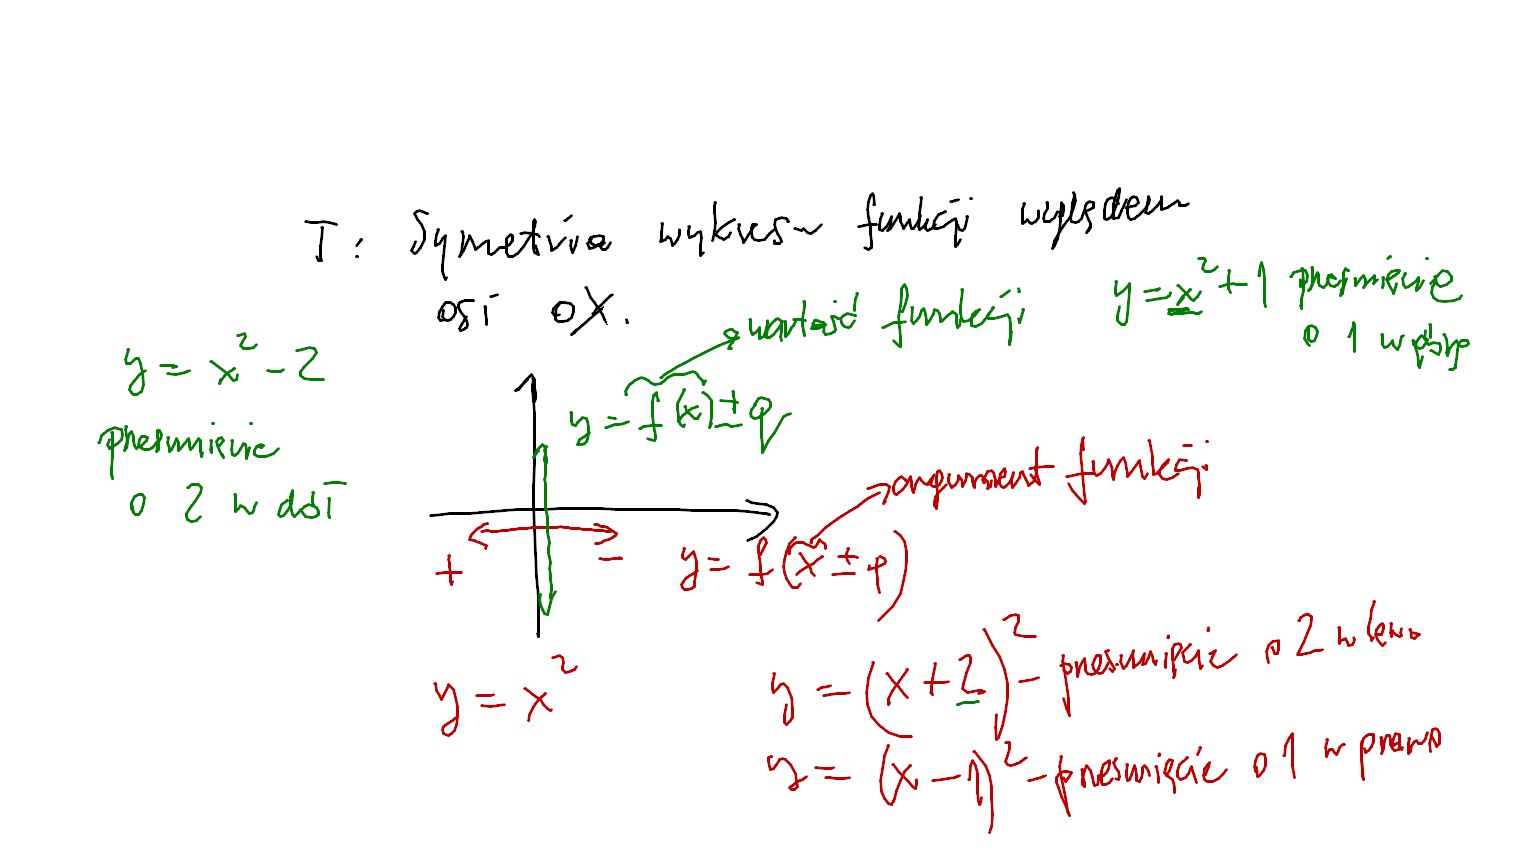 T: Symetria wykresu funkcji względem
osi OX.
y = x² + 1 przesunięcie
o 1 w górę
wartość funkcji
y = x² - 2
przesunięcie
o 2 w dół
y = f(x) ± q
argument funkcji
+
-
y = f(x ± p)
y = x²
y = (x + 2)² - przesunięcie o 2 w lewo
y = (x - 1)² - przesunięcie o 1 w prawo